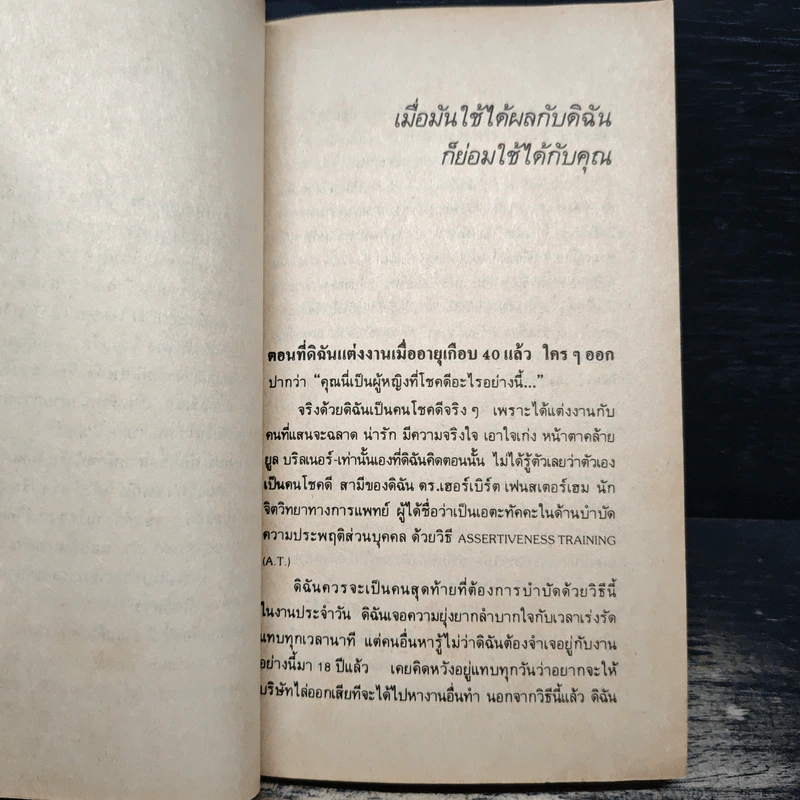 เมื่อมันใช้ได้ผลกับดิฉัน
ก็ย่อมใช้ได้กับคุณ
ตอนที่ดิฉันแต่งงานเมื่ออายุเกือบ 40 แล้ว ใคร ๆ ออก
ปากว่า “คุณนี่เป็นผู้หญิงที่โชคดีอะไรอย่างนี้...”
จริงด้วยดิฉันเป็นคนโชคดีจริง ๆ เพราะได้แต่งงานกับ
คนที่แสนจะฉลาด น่ารัก มีความจริงใจ เอาใจเก่ง หน้าตาคล้าย
ยูล บริลเนอร์-เท่านั้นเองที่ดิฉันคิดตอนนั้น ไม่ได้รู้ตัวเลยว่าตัวเอง
เป็นคนโชคดี สามีของดิฉัน ดร.เฮอร์เบิร์ต เฟนสเตอร์เฮม นัก
จิตวิทยาทางการแพทย์ ผู้ได้ชื่อว่าเป็นเอตะทัคคะในด้านบำบัด
ความประพฤติส่วนบุคคล ด้วยวิธี ASSERTIVENESS TRAINING
(A.T.)
ดิฉันควรจะเป็นคนสุดท้ายที่ต้องการบำบัดด้วยวิธีนี้
ในงานประจำวัน ดิฉันเจอความยุ่งยากลำบากใจกับเวลาเร่งรัด
แทบทุกเวลานาที แต่คนอื่นหารู้ไม่ว่าดิฉันต้องจำเจอยู่กับงาน
อย่างนี้มา 18 ปีแล้ว เคยคิดหวังอยู่แทบทุกวันว่าอยากจะให้
บริษัทไล่ออกเสียทีจะได้ไปหางานอื่นทำ นอกจากวิธีนี้แล้ว ดิฉัน